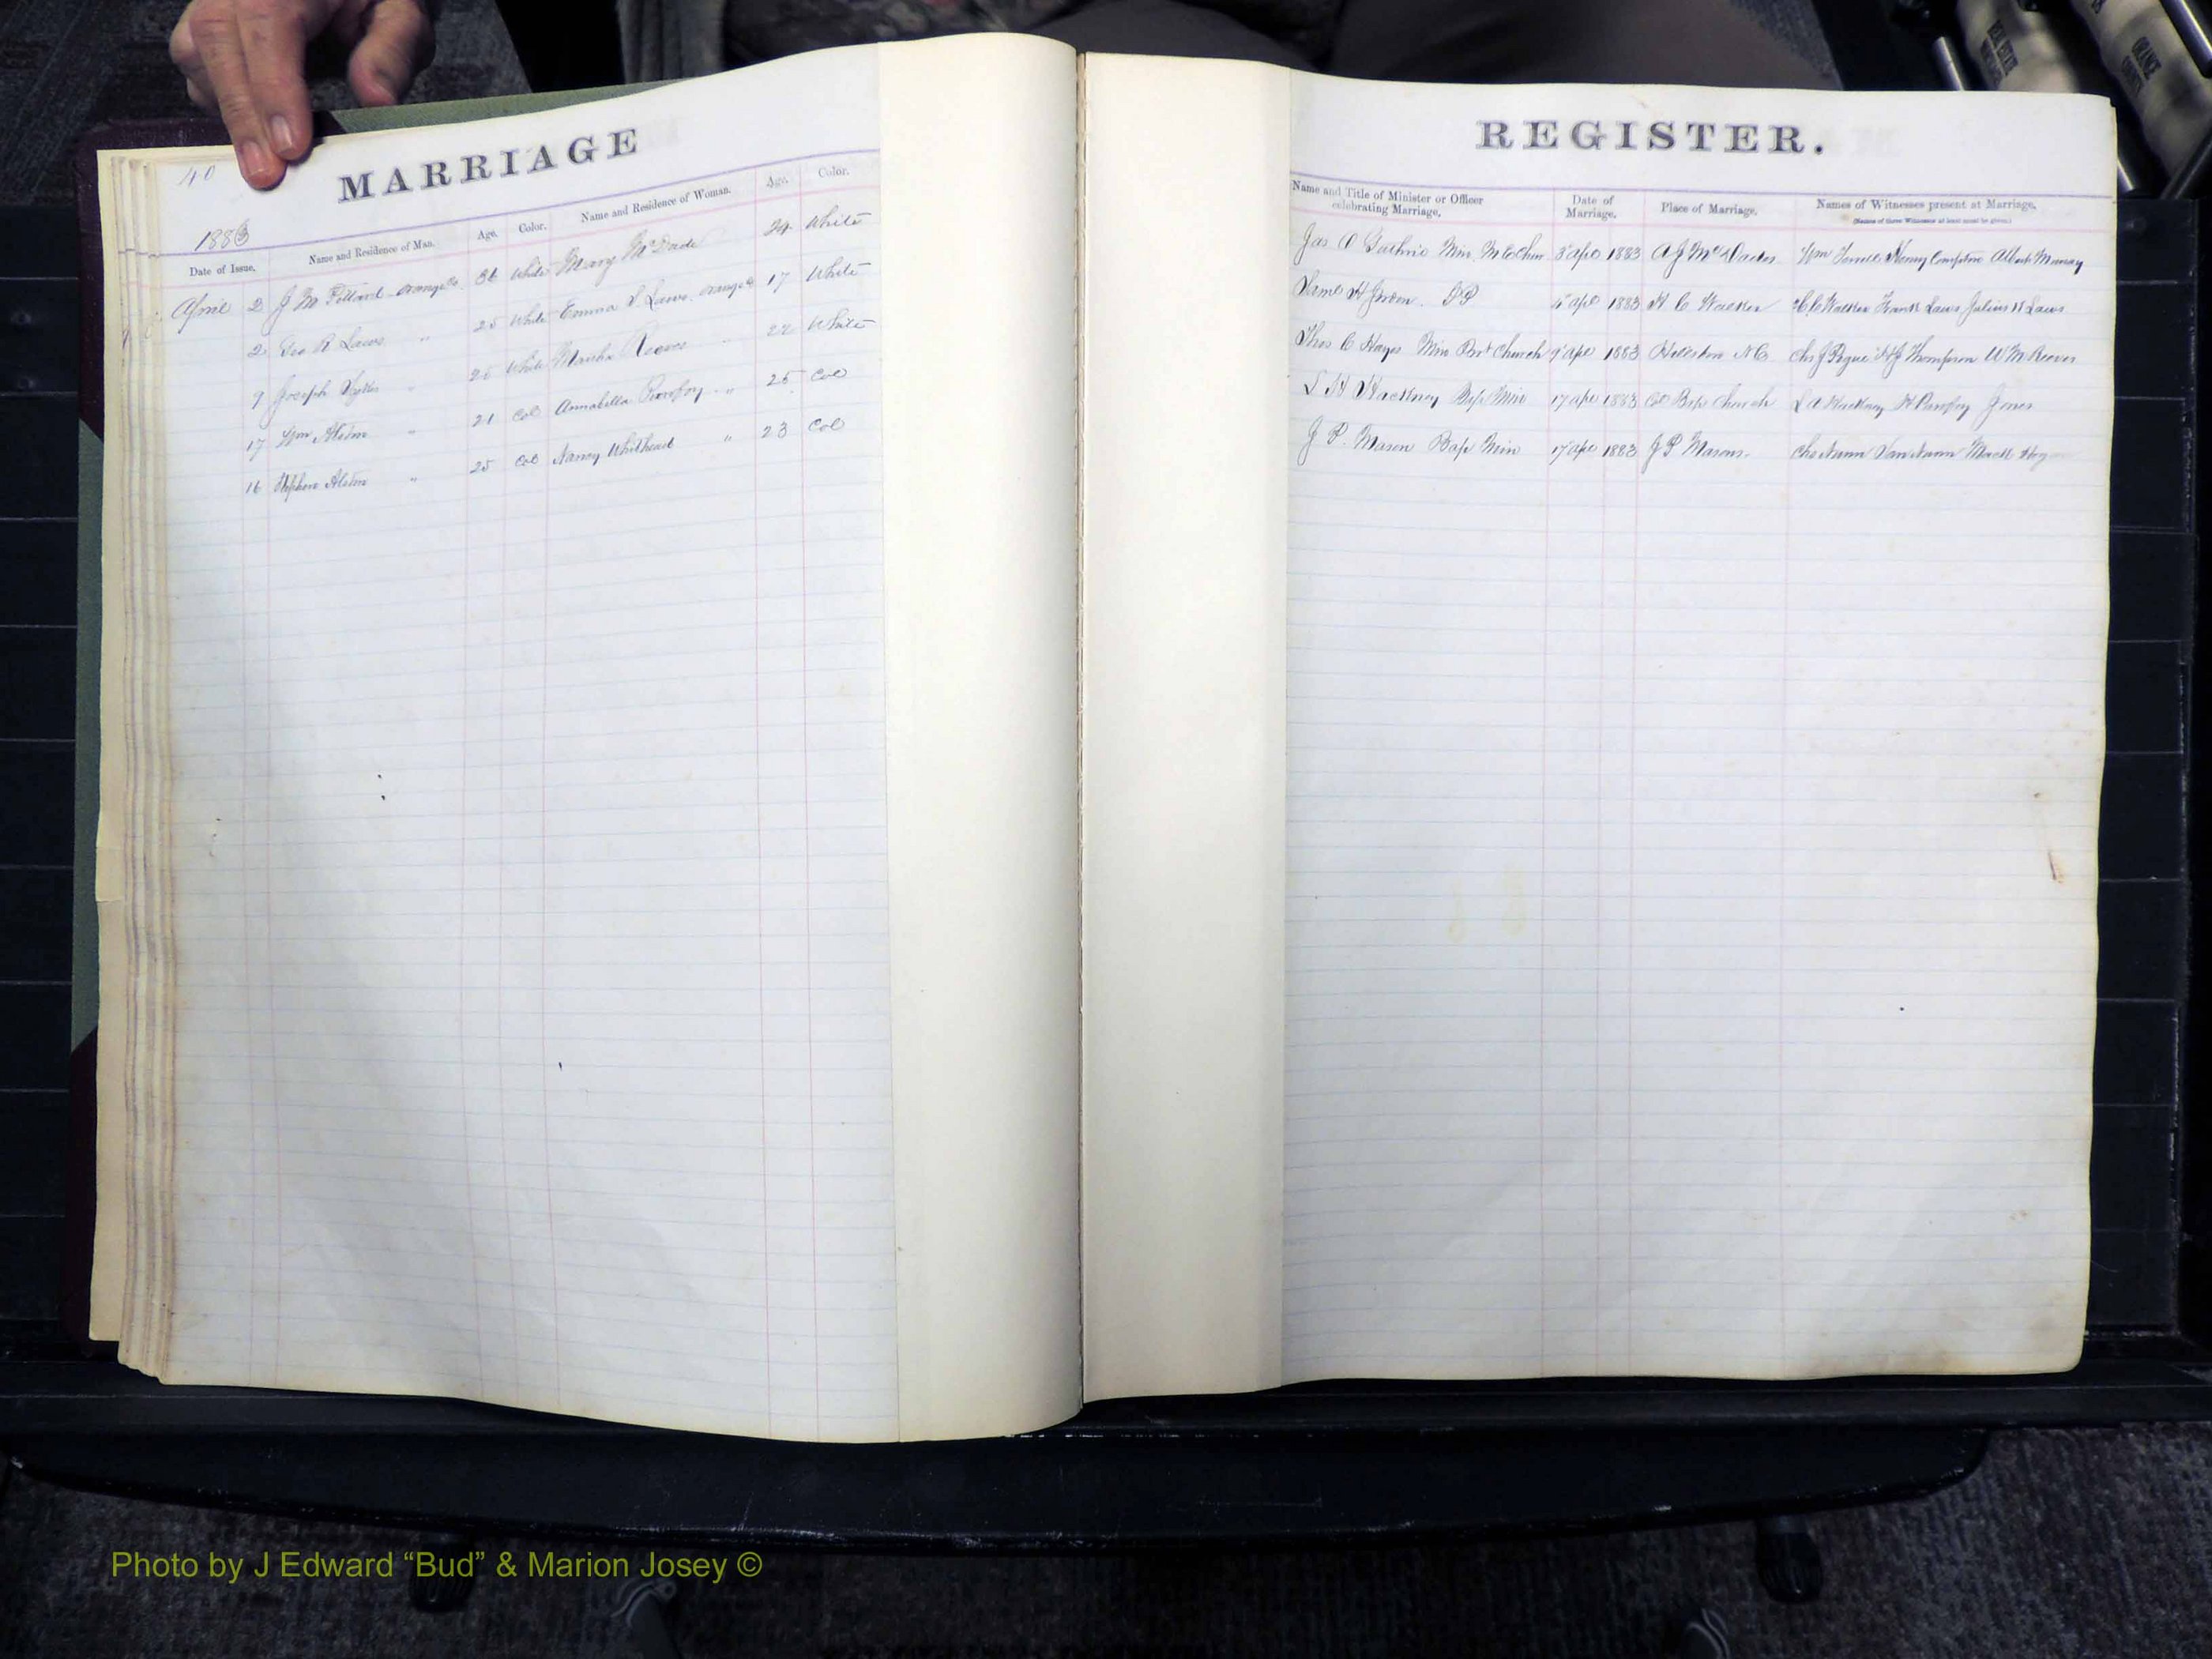 40
MARRIAGE
1883
Date of Issue. Name and Residence of Man. Age. Color. Name and Residence of Woman. Age. Color.
April 2 J M Pollard Orange Co. 36 White Mary McDade 24 White
2 Geo R Laws " 25 White Emma S Laws Orange Co 17 White
9 Joseph Sykes " 25 White Martha Reeves " 22 White
17 Wm Alston " 21 Col Annabella Purefoy " 25 Col
16 Stephen Alston " 25 Col Nancy Whithead " 23 Col
REGISTER.
Name and Title of Minister or Officer celebrating Marriage. Date of Marriage. Place of Marriage. Names of Witnesses present at Marriage.
(Names of three Witnesses at least must be given.)
Jas O Guthrie Min. M E Chur 3 apl 1883 A J McDades Wm Henry Compton Albert Murray
H J P apl 1883 H C Walker C C Walker Frank Laws Julius H Laws
Thos C Hayes Min Church 9 apl 1883 N C Chs J Pogue H J Thompson W M Reeves
L H Hackney Bap Min 17 apl 1883 Col Bap Church L A Hackney H Purefoy Jones
J P. Mason Bap Min 17 apl 1883 J P Masons. Chs Nunn Van Nunn Mack
ORANGE COUNTY
Photo by J Edward “Bud” & Marion Josey ©